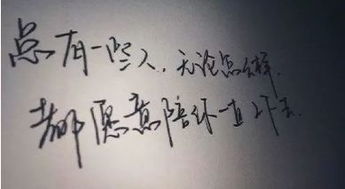 总有一些人，无论怎么样，
都愿意陪你一直下去